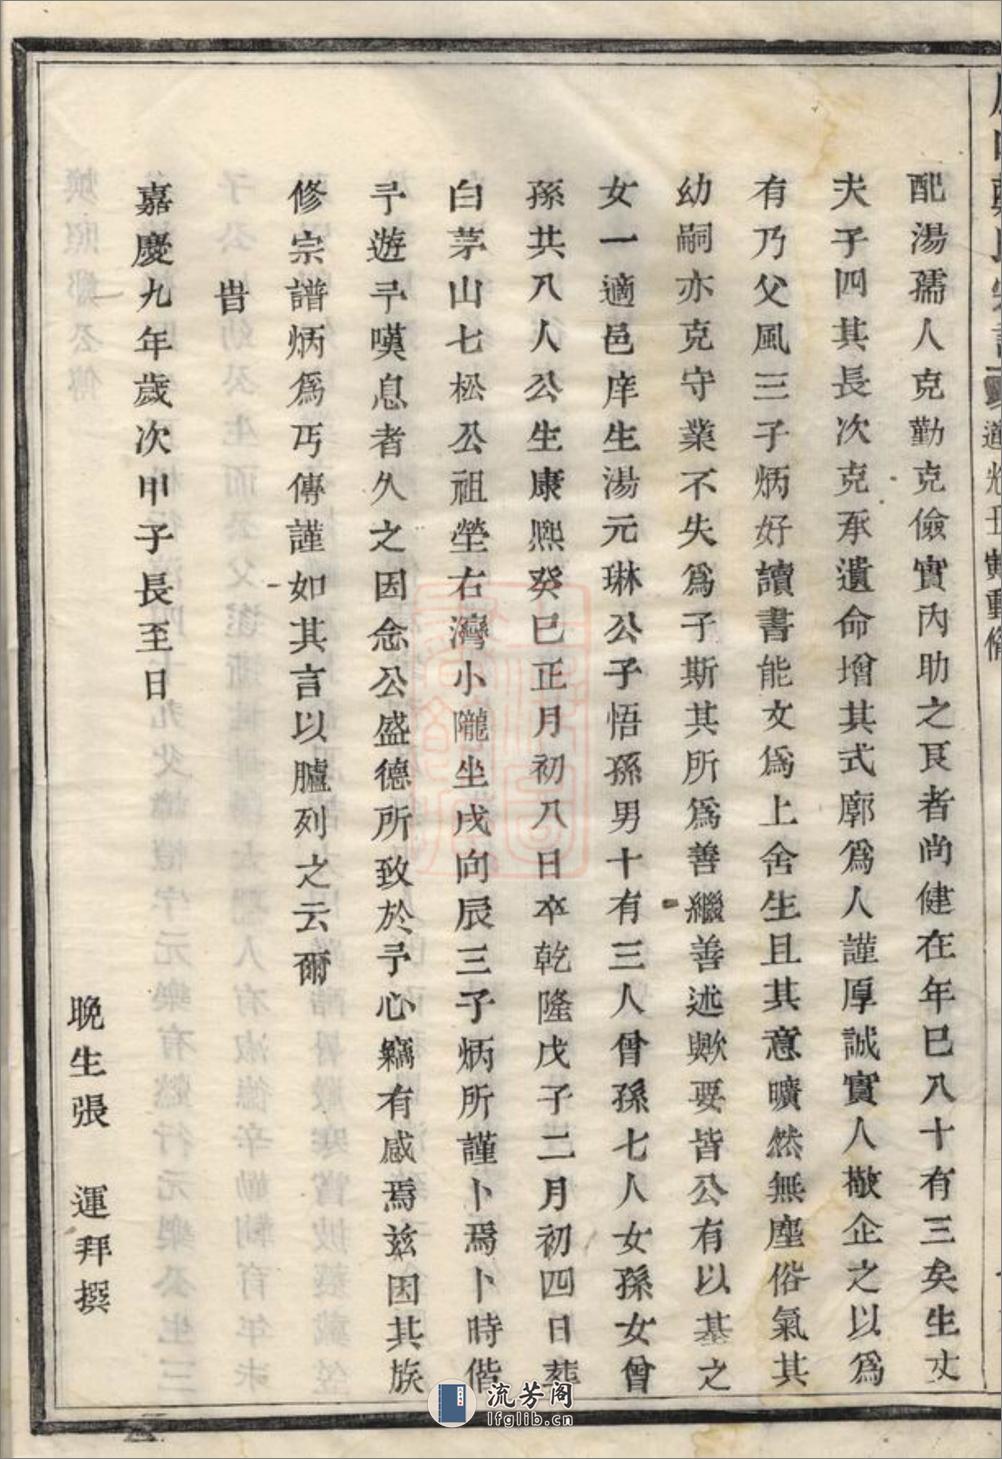 配湯孺人克勤克儉實內助之良者尚健在年巳八十有三矣生丈
夫子四其長次克承遺命增其式廓爲人謹厚誠實人敬企之以爲
有乃父風三子炳好讀書能文爲上舍生且其意曠然無塵俗氣其
幼嗣亦克守業不失爲子斯其所爲善繼善述歟要皆公有以基之
女一適邑庠生湯元琳公子悟孫男十有三人曾孫七人女孫女曾
孫共八人公生康熙癸巳正月初八日卒乾隆戊子二月初四日葬
白茅山七松公祖塋右灣小隴坐戌向辰三子炳所謹卜焉卜時偕
予遊予嘆息者久之因念公盛德所致於予心竊有感焉兹因其族
修宗譜炳爲丐傳謹如其言以臚列之云爾
旹
嘉慶九年歲次甲子長至日
晚生張 運拜撰
流芳阁
lfglib.cn